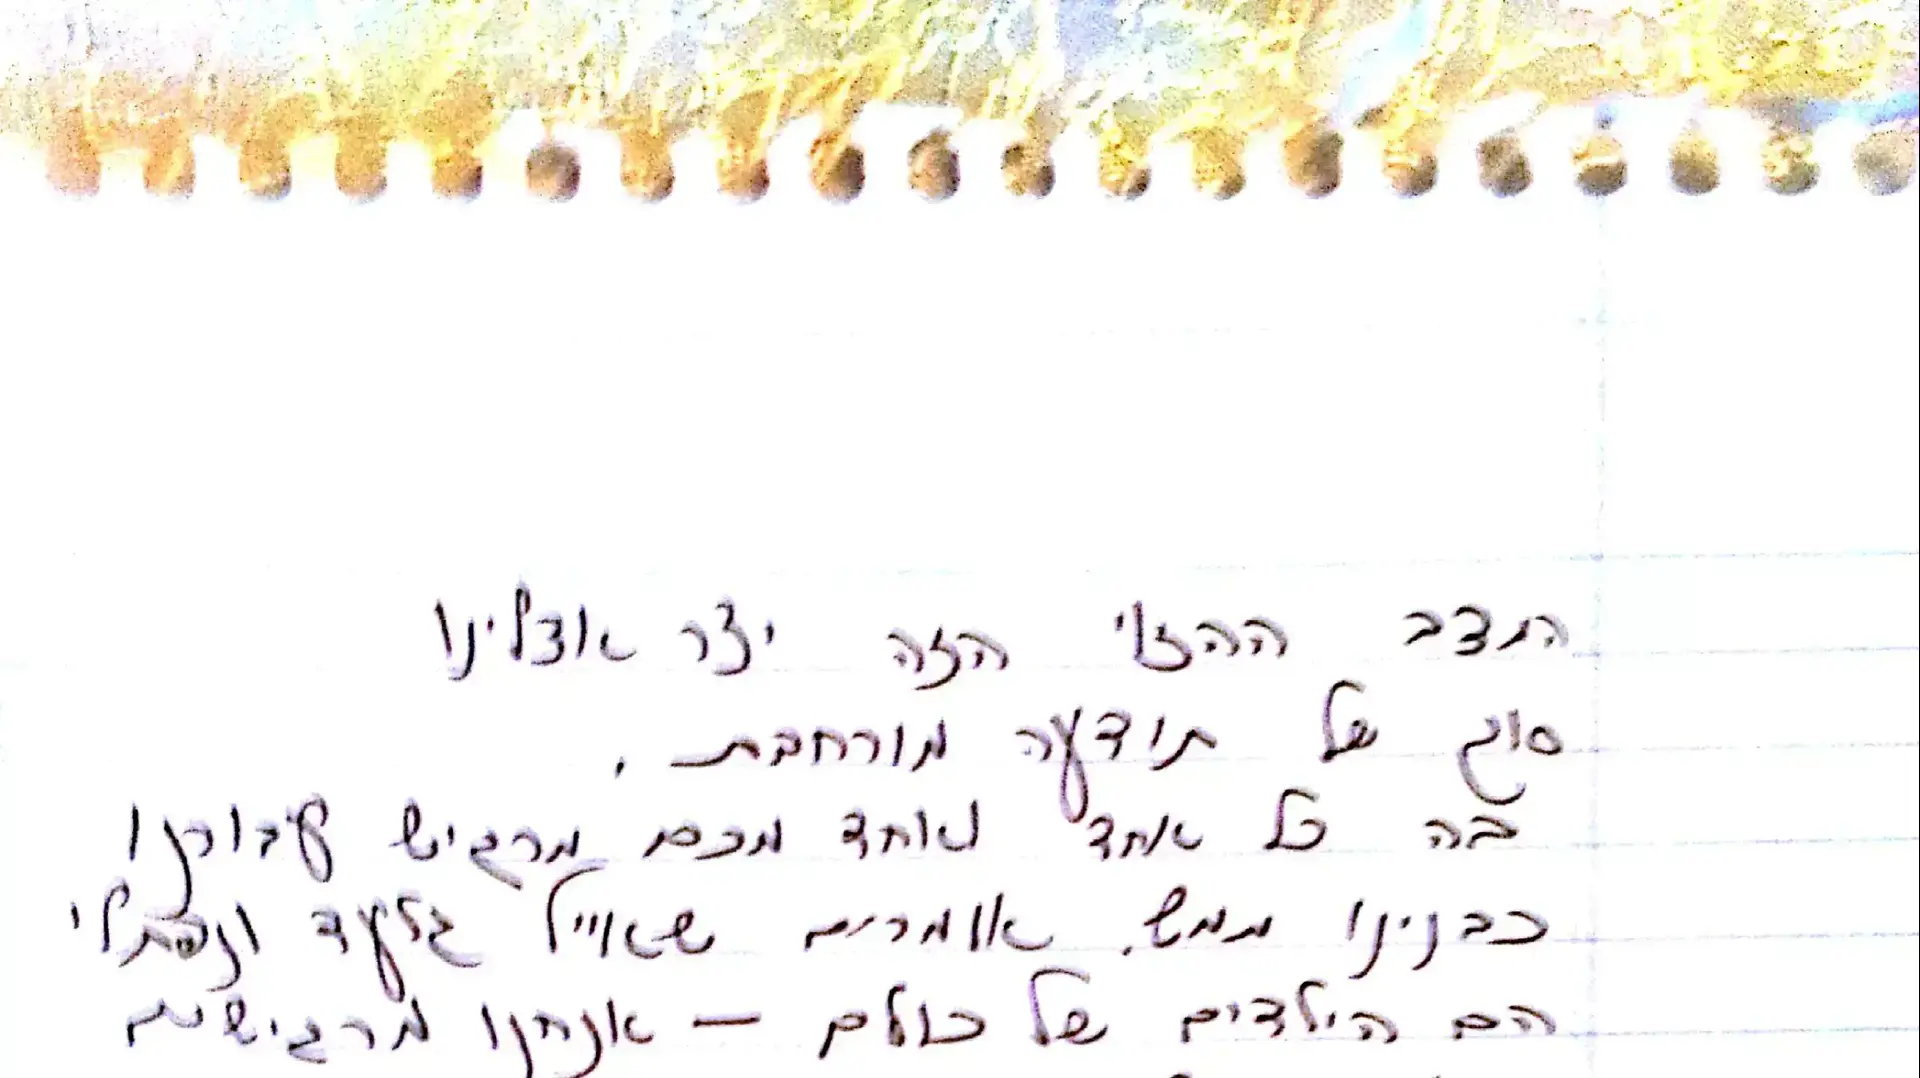 המצב ההזוי הזה יצר אצלינו
סוג של תודעה מורחבת.
בה כל אחד ואחד מכם מרגיש עבורנו
כבנינו ממש. אומרים שאייל גלעד ונפתלי
הם הילדים של כולם — אנחנו מרגישים